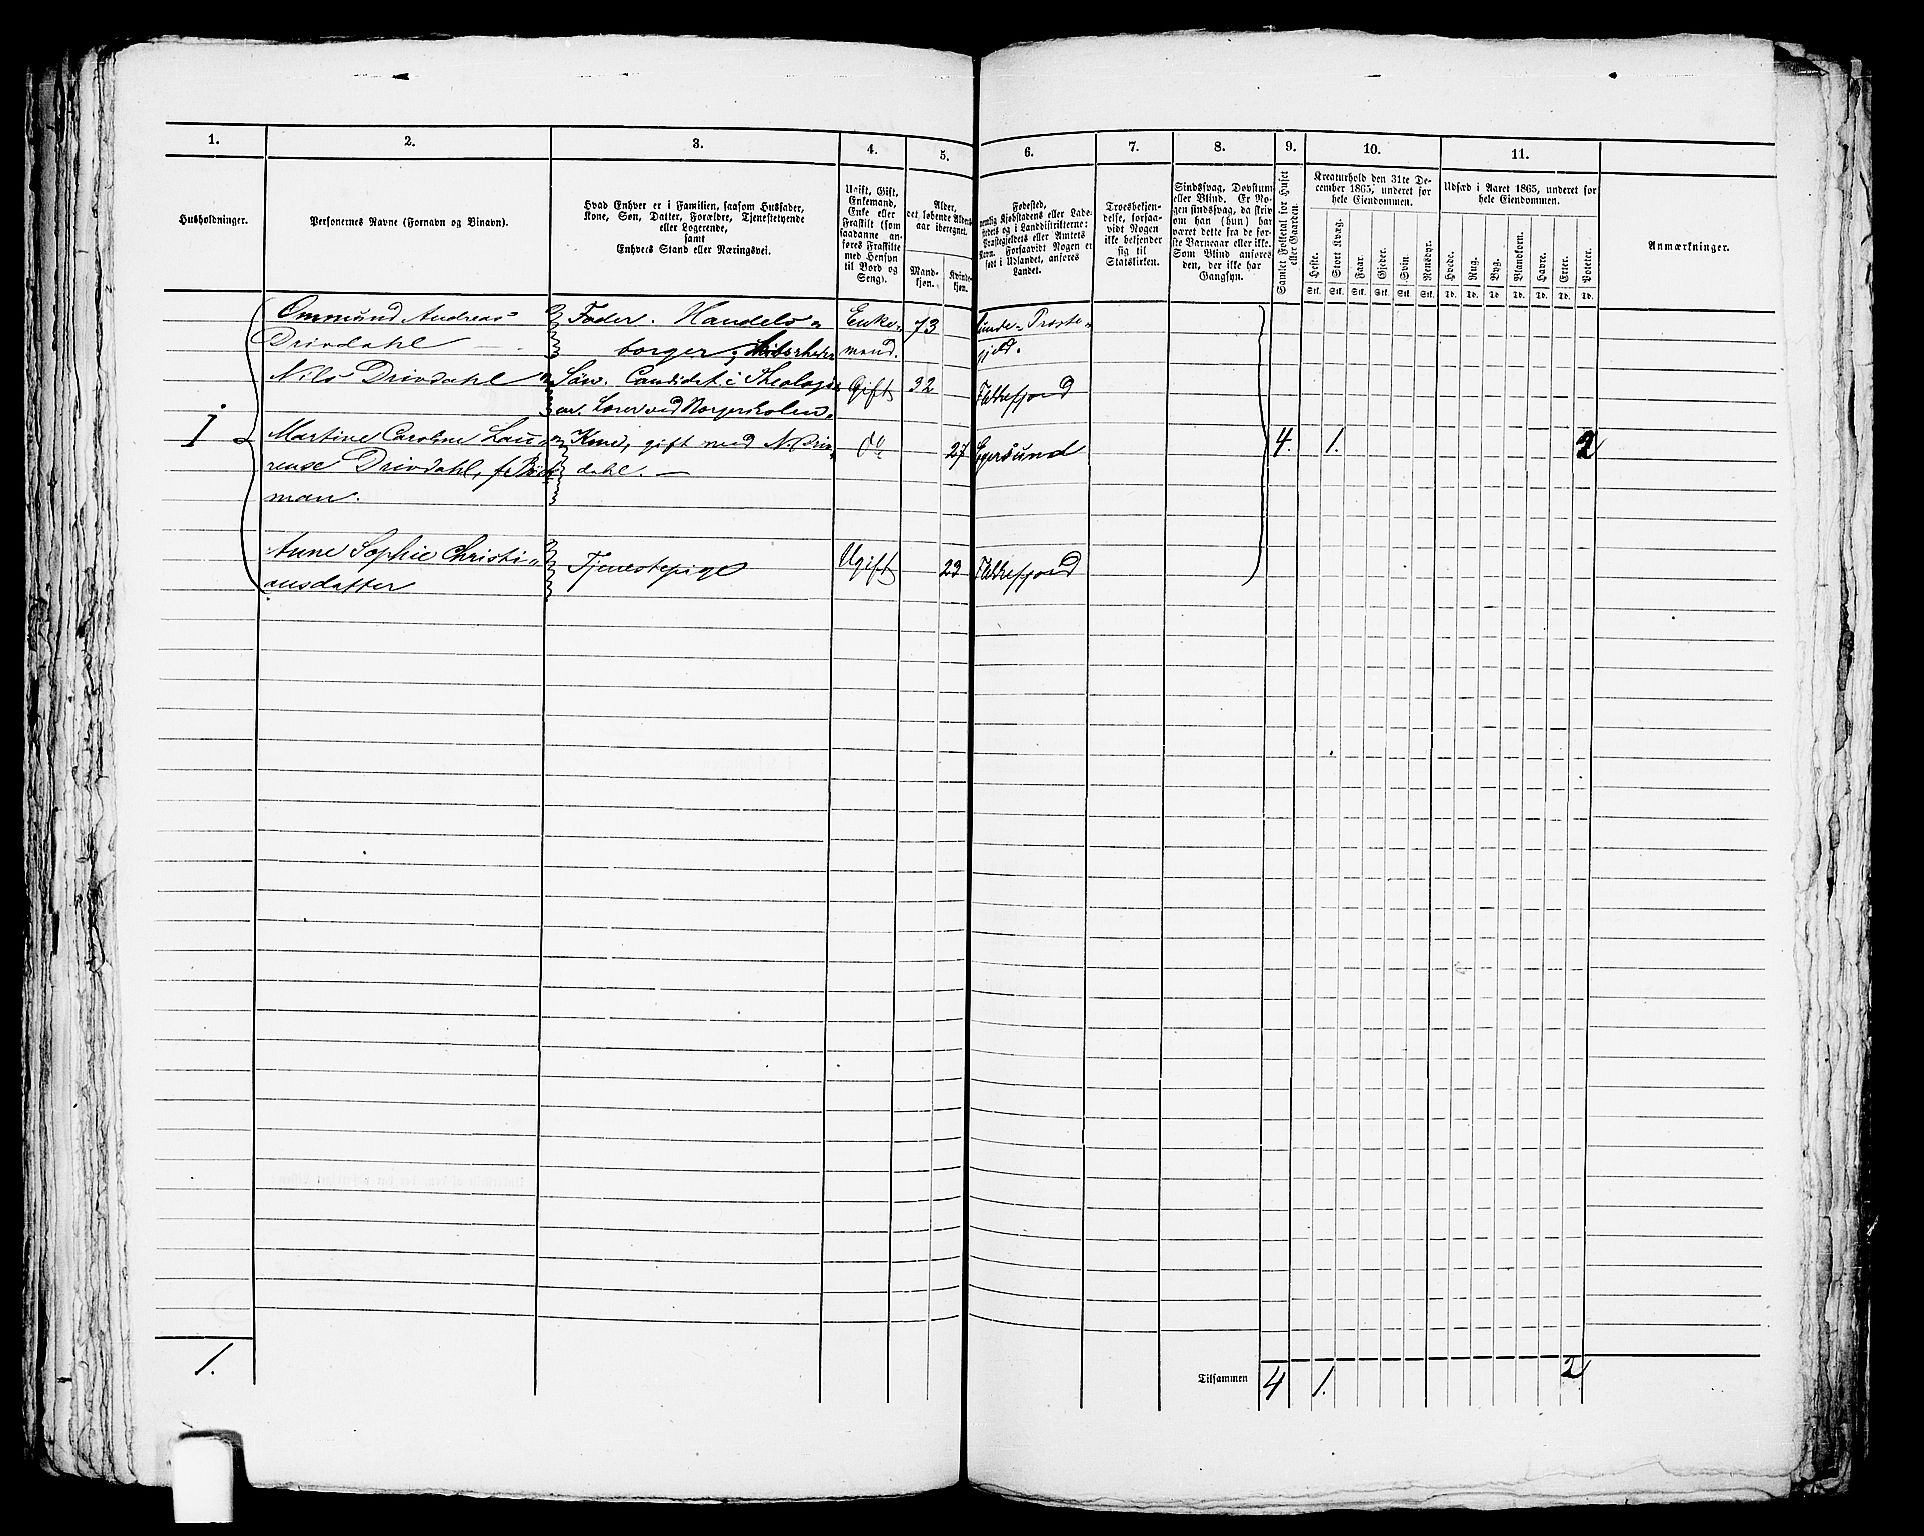 1.
2.
3.
4.
5.
6.
7.
8.
9.
10.
11.
Husholdninger.
Personernes Navne (Fornavn og Binavn).
Hvad Enhver er i Familien, saasom Husfader,
Kone, Søn, Datter, Forældre, Tjenestetyende
eller Logerende,
samt
Enhvers Stand eller Næringsvei.
Ugift, Gift,
Enkemand,
Enke eller
Fraskilt (som
saadanne an-
føres Fraskilte
med Hensyn
til Bord og
Seng).
Alder,
det løbende Alders-
aar iberegnet.
Mand-
kjøn.
Kvinde-
kjøn.
Fødested,
nemlig Kjøbstadens eller Lade-
stedets og i Landdistrikterne:
Præstegjeldets eller Amtets
Navn. Forsaavidt Nogen er
født i Udlandet, anføres
Landet.
Troesbekjen-
delse, forsaa-
vidt Nogen
ikke bekjender
sig til
Statskirken.
Sindssvag, Døvstum
eller Blind. Er No-
gen sindssvag, da skriv
om han (hun) har
været dette fra de før-
ste Barneaar eller ikke.
Som Blind anføres
den, der ikke har
Gangsyn.
Samlet Folketal for Huset
eller Gaarden.
Kreaturhold den 31te De-
cember 1865, underet for
hele Eiendommen.
Heste.
Stort Kvæg.
Faar.
Gjeder.
Svin.
Rensdyr.
Stk. Stk. Stk. Stk. Stk. Stk.
Udsæd i Aaret 1865, underet for
hele Eiendommen.
Hvede.
Rug.
Byg.
Blandkorn.
Havre.
Erter.
Poteter.
Td. Td. Td. Td. Td. Td. Td.
Anmærkninger.
Ommund Andreas Fader. Handels- Enke- 73 Præste-
Drivdahl borger, mand. gjeld.
Nils Drivdahl Søn. Candidat i Theologi- Gift 32 Flekkefjord
en. Lærer ved Borgerskolen.
1 Martine Caroline Lau- Kone, gift med N. Driv- do 27 Egersund 4. 1. 2
rense Drivdahl, f. dahl.
man.
Anne Sophie Christi- Tjenestepige Ugift 22 Flekkefjord
ansdatter
1. Tilsammen 4 1. 2